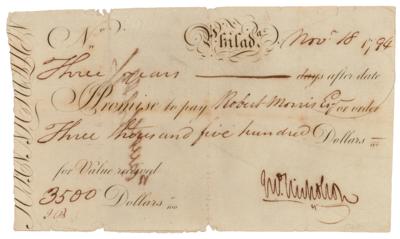 No. Philada. Novr 18 1794
Three years days after date
Promise to pay Robert Morris Esqr or order
Three thousand five hundred Dollars
for Value received
3500 Dollars
Jno Nicholson